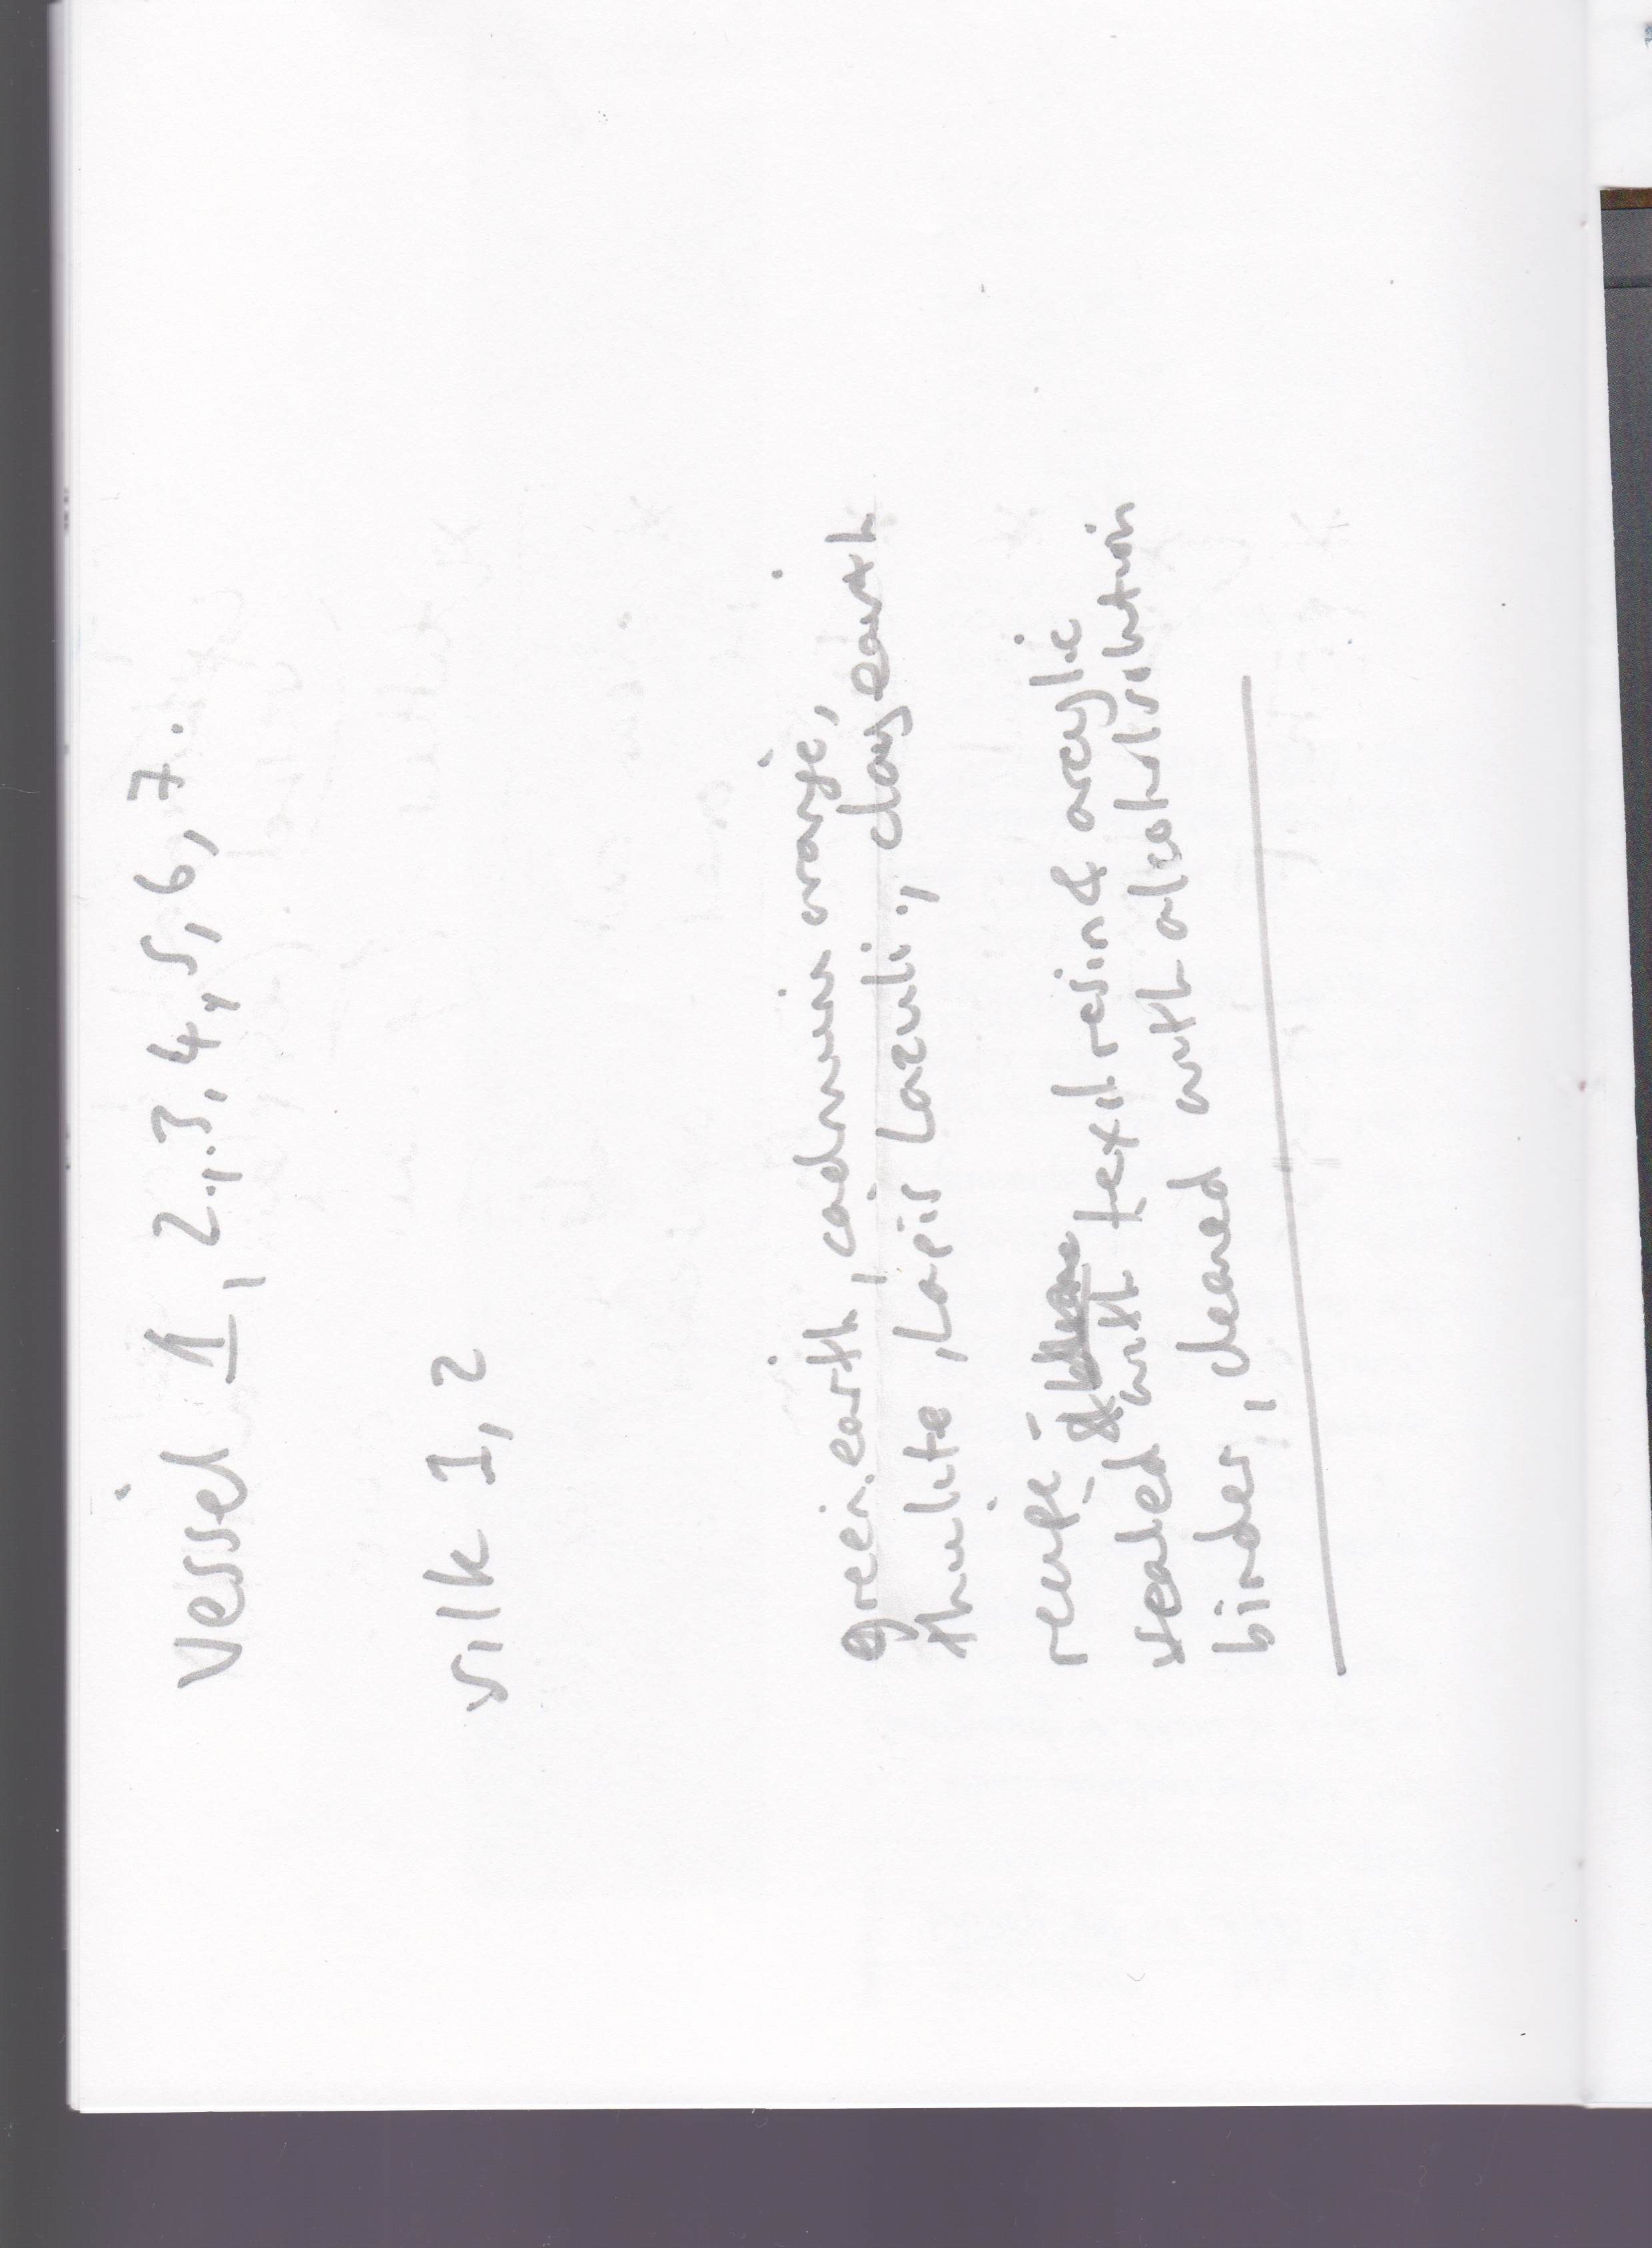 Vessel 1, 2, 3, 4, 5, 6, 7.
silk 1, 2
green earth, cadmium orange,
thulite, Lapis Lazuli, clay earth
recipe -
sealed with textil resin & acrylic
binder, cleaned with alcohol solution